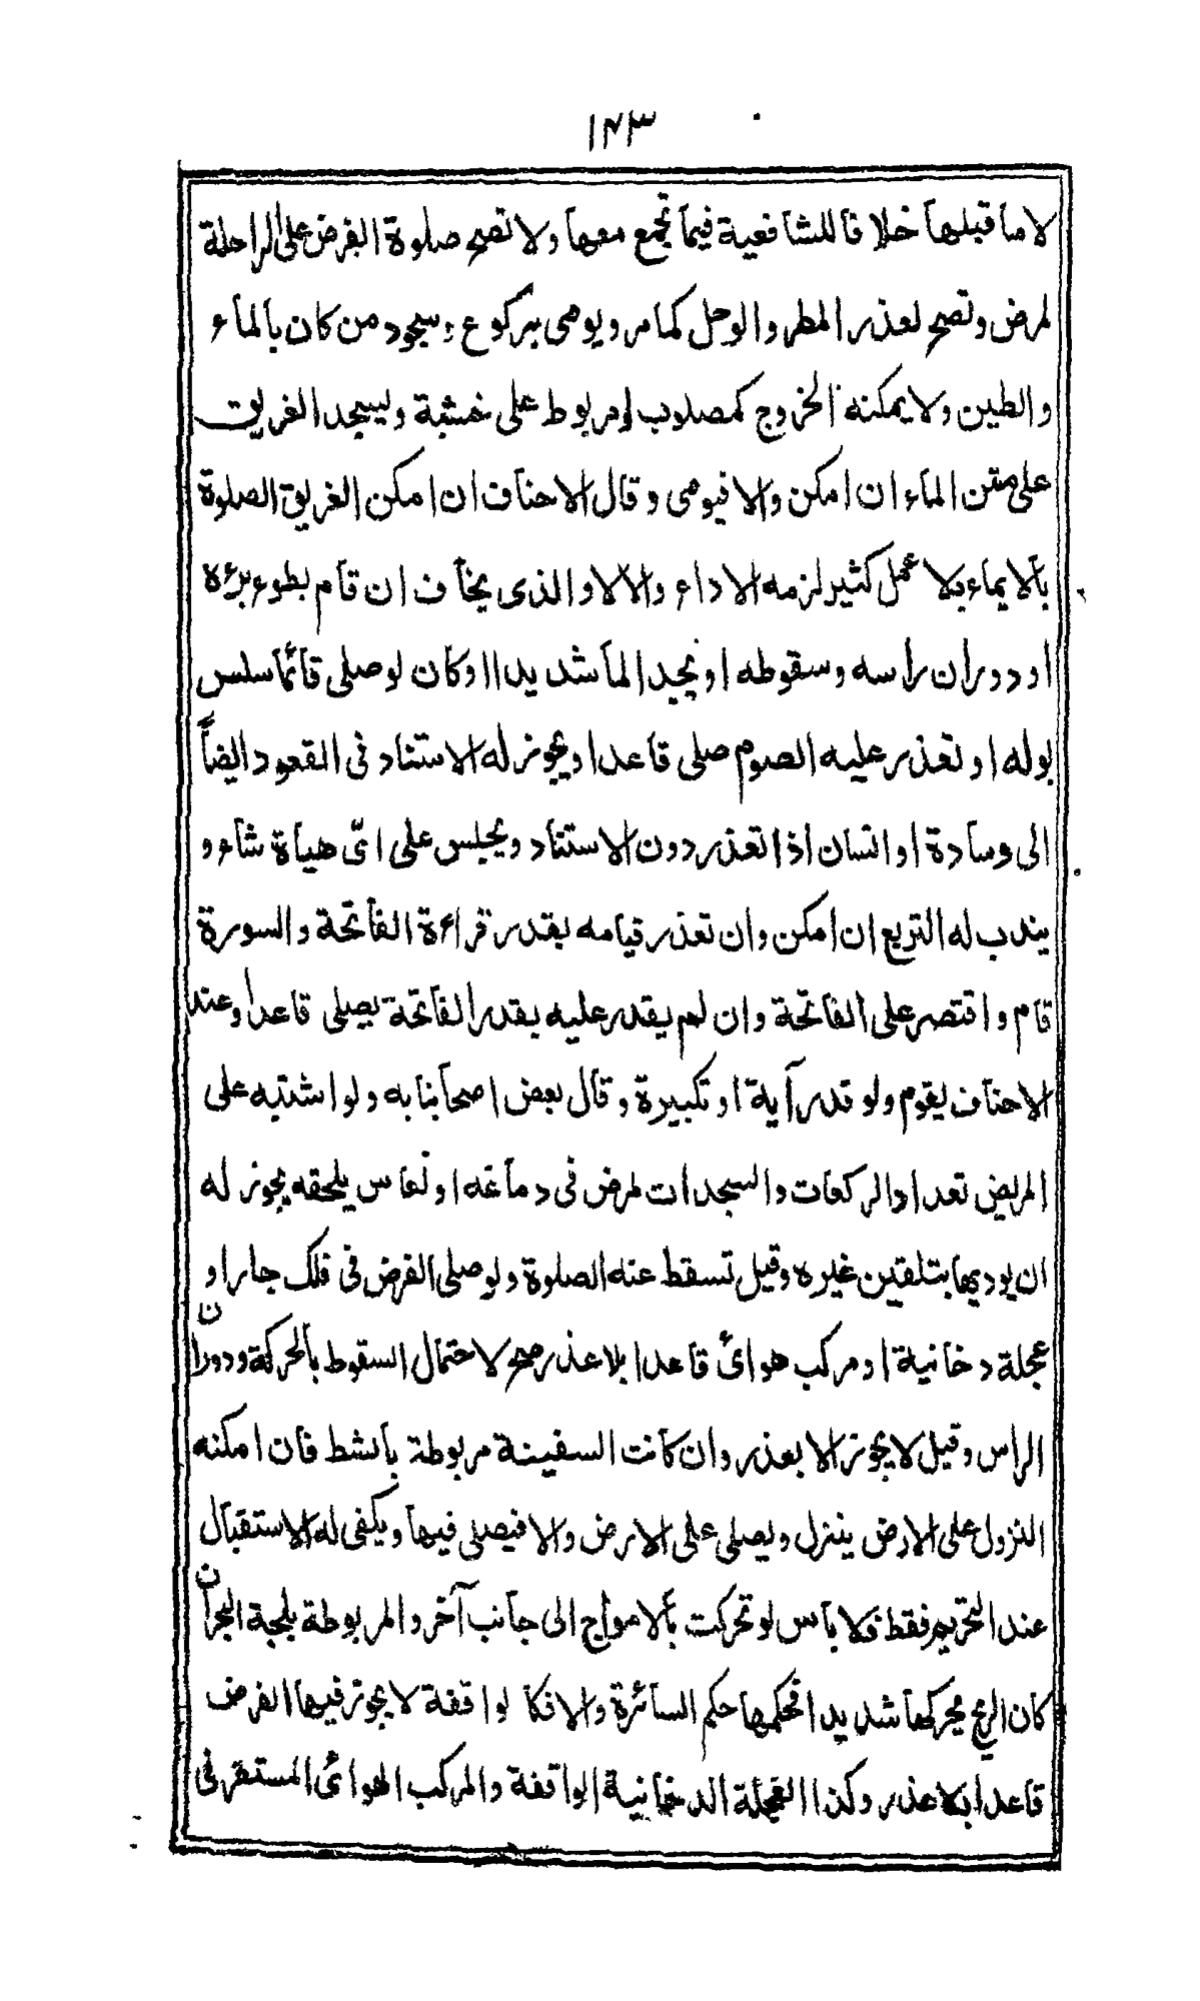 ١٤٣
لا ما قبلها خلا فا للشا فعية فيما تجمع معها ولا تصح صلوة الفرض على الراحلة
لمرض وتصح لعذر المطر والوحل كما مر ويومى بركوع وسجود من كان بالماء
والطين ولا يمكنه الخروج كمصلوب او مربوط على خشبة وليسجد الغريق
على متن الماء ان امكن والا فيومى وقال الاحناف ان امكن الغريق الصلوة
بالايماء بلا عمل كثير لزمه الاداء والا لا والذى يخاف ان قام بطوء برءه
او دوران راسه وسقوطه او يجد الما شديدا او كان لو صلى قائما سلس
بوله او تعذر عليه الصوم صلى قاعدا ويجوز له الاستناد فى القعود ايضاً
الى وسادة او انسان اذا تعذر دون الاستناد ويجلس على اىّ هياة شاء و
يندب له التربع ان امكن وان تعذر قيامه بقدر قراءة الفاتحة والسورة
قام واقتصر على الفاتحة وان لم يقدر عليه بقدر الفاتحة يصلى قاعدا وعند
الاحناف يقوم ولو قدر آية او تكبيرة وقال بعض اصحابنا به ولو اشتبه على
المريض تعداد الركعات والسجدات لمرض فى دماغه او نعاس يلحقه يجوز له
ان يوديها بتلقين غيره وقيل تسقط عنه الصلوة ولو صلى الفرض فى فلك جار او
عجلة دخانية او مركب هوائ قاعدا بلا عذر صح لاحتمال السقوط بالحركة ودوران
الراس وقيل لا يجوز الا بعذر وان كانت السفينة مربوطة بالشط فان امكنه
النزول على الارض ينزل ويصلى على الارض والا فيصلى فيها ويكفى له الاستقبال
عند التحريم فقط فلا باس لو تحركت بالامواج الى جانب آخر والمربوطة بلجة البحر ان
كان الريح يحركها شديدا فحكمها حكم السائرة والا فكا لواقفة لا يجوز فيها الفرض
قاعدا بلا عذر وكذا العجلة الدخانية الواقفة والمركب الهوائى المستقر فى